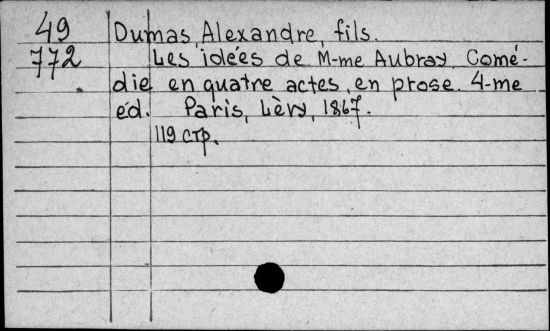 49 Dumas, Alexandre, fils.
772 Les idées de M-me Aubray. Comé-
die en quatre actes, en prose. 4-me
ed. Paris, Lèvy, 1867.
119 стр.